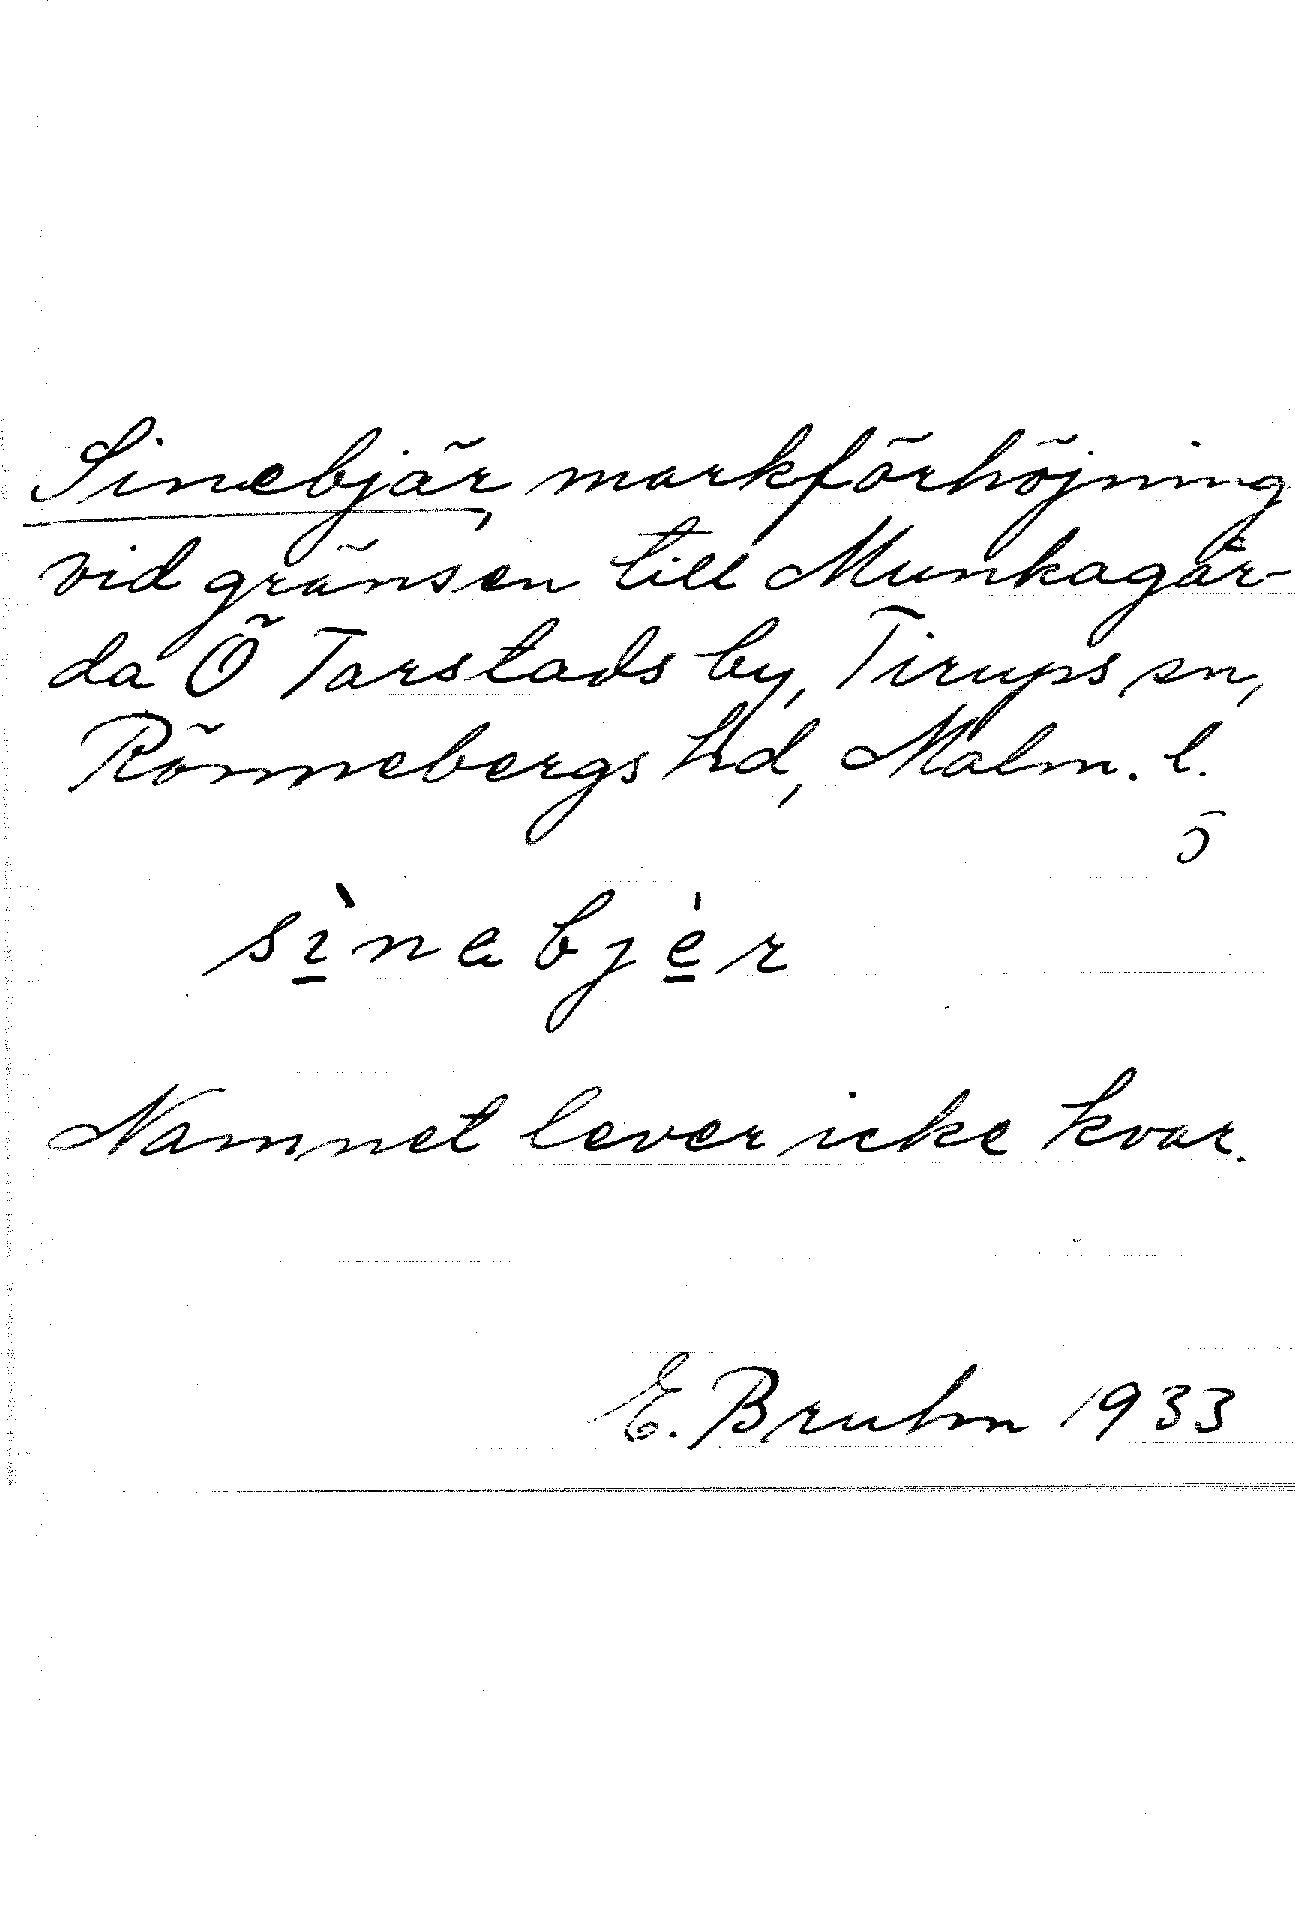 Sinebjär, markförhöjning
vid gränsen till Munkagår-
da Ö Tarstads by, Tirups sn,
Rönnebergs hd, Malm. l.
5
sìnabjér
Namnet lever icke kvar.
E. Bruhn 1933